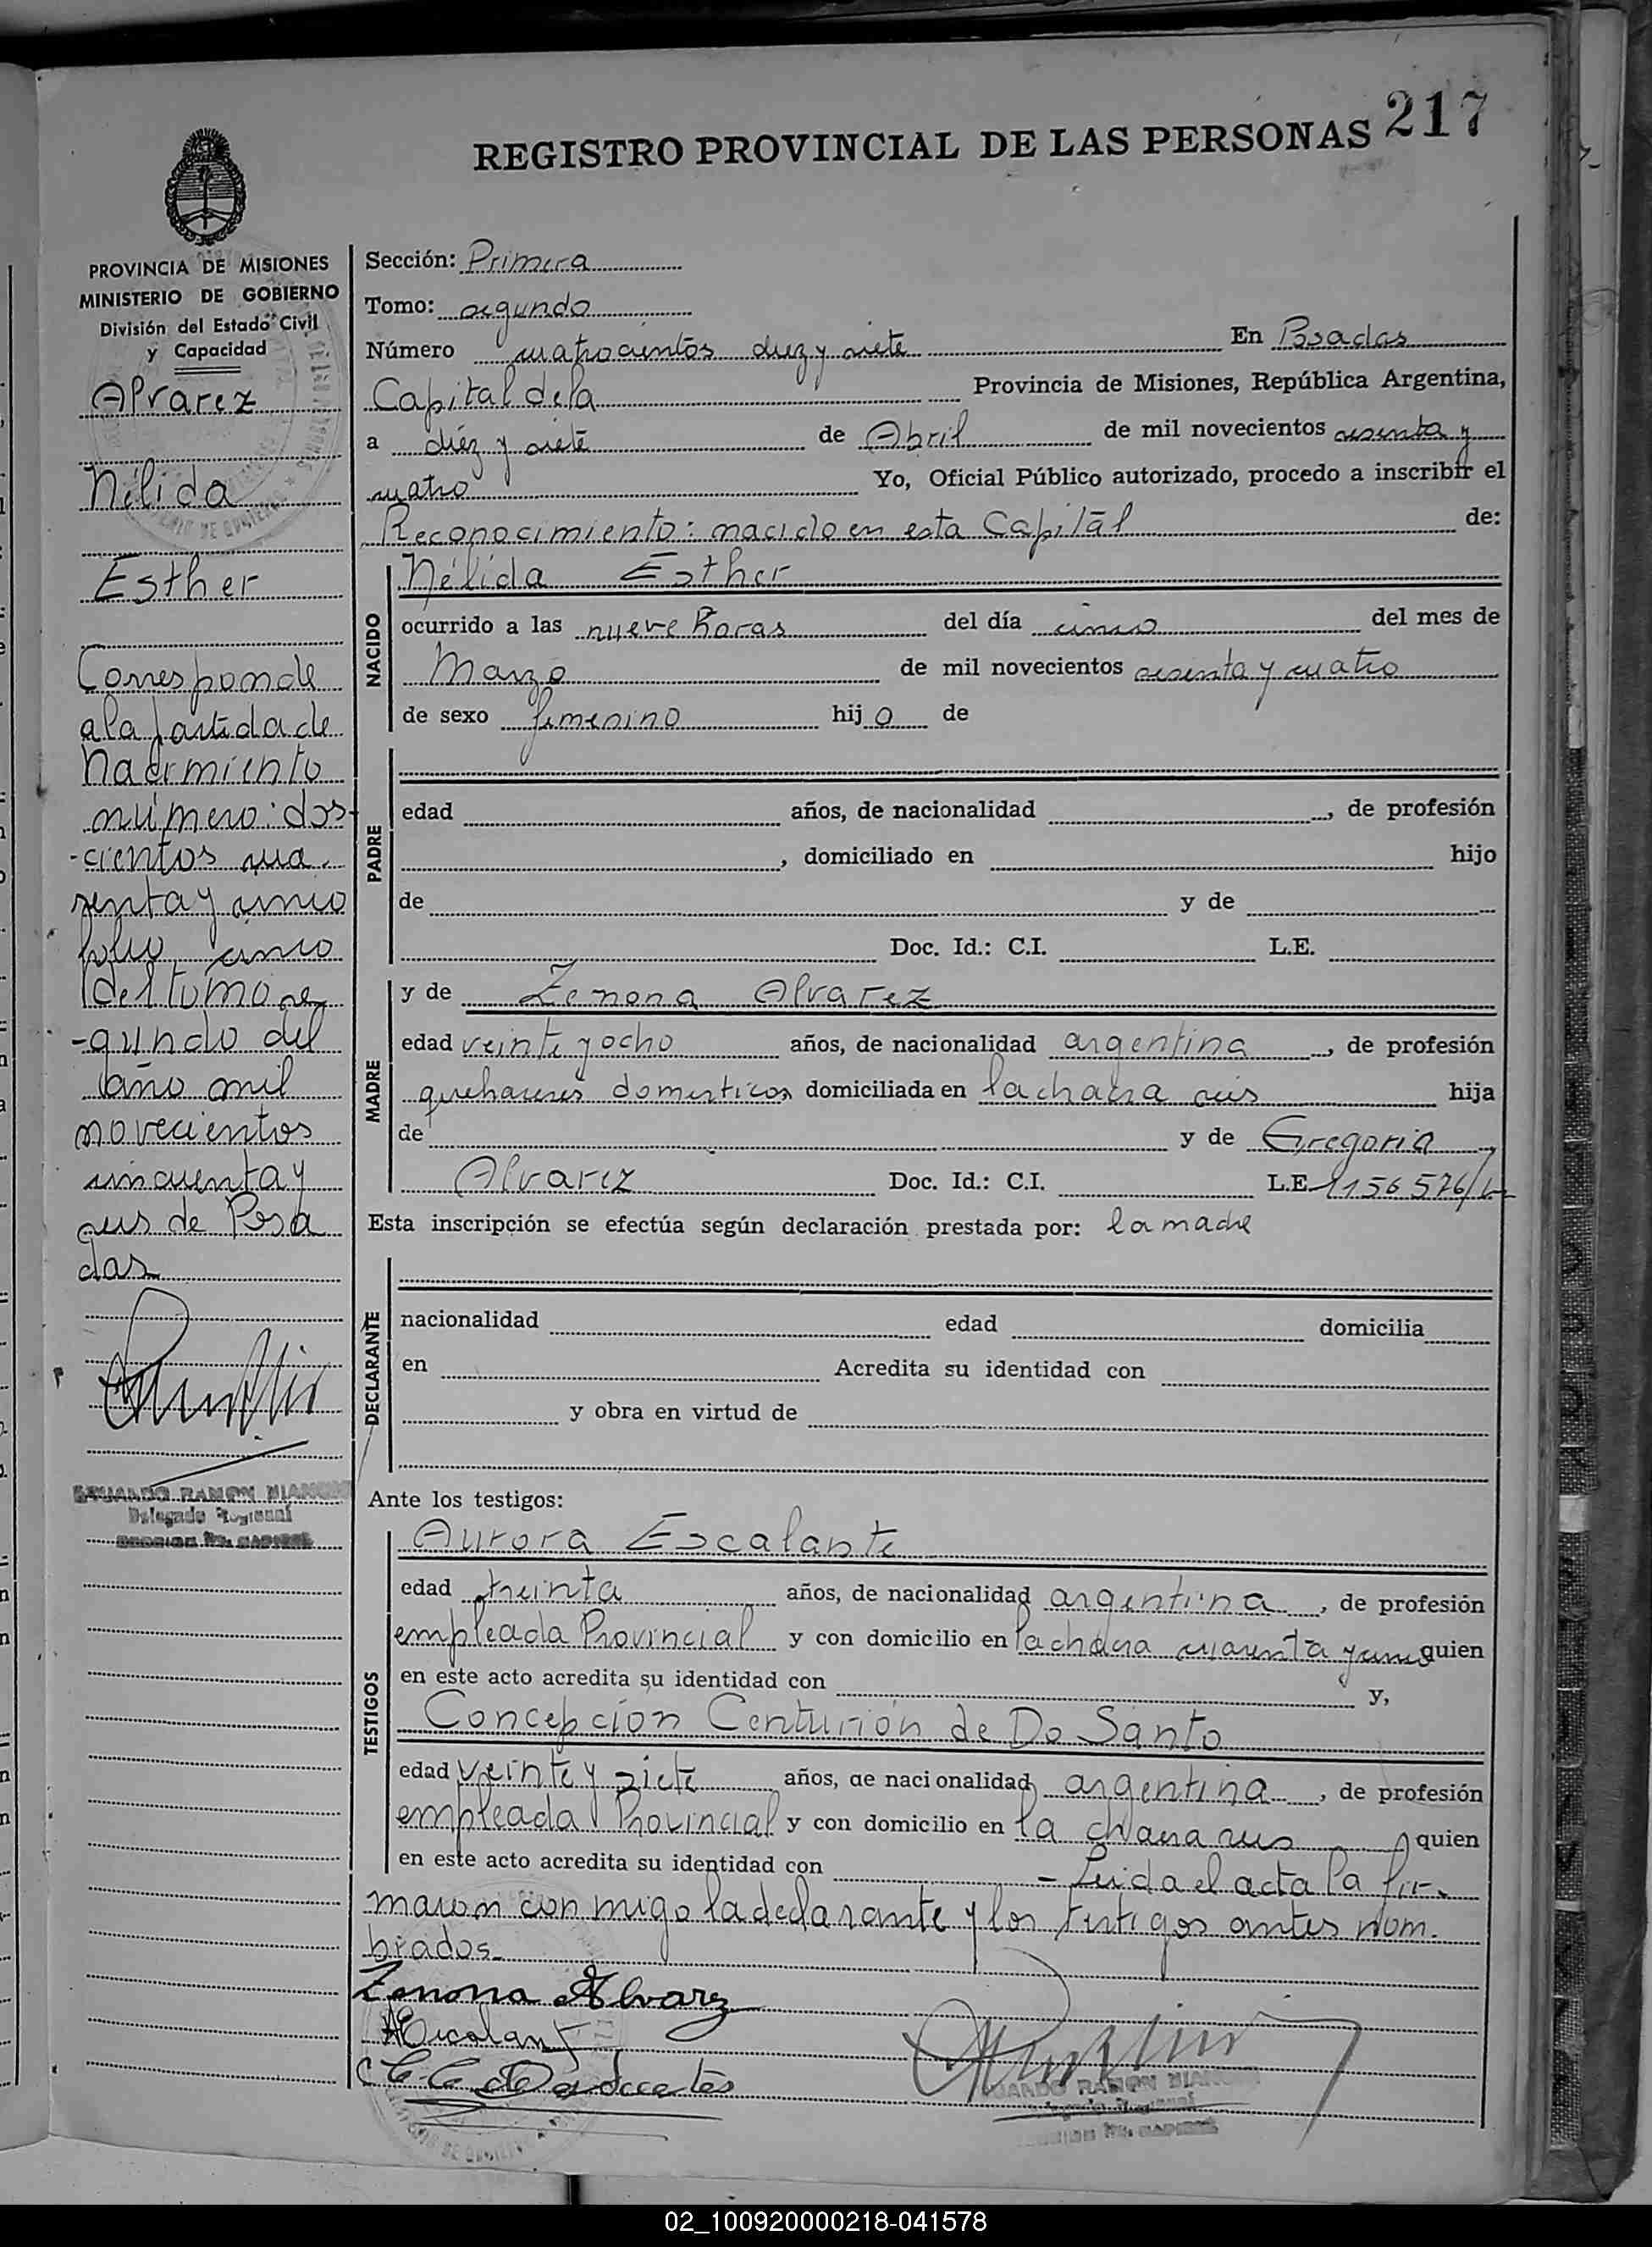 217
REGISTRO PROVINCIAL DE LAS PERSONAS
PROVINCIA DE MISIONES
MINISTERIO DE GOBIERNO
División del Estado Civil
y Capacidad
Alvarez
Nélida
Esther
Corresponde
a la partida de
Nacimiento
número: dos-
-cientos cua
renta y cinco
folio cinco
del tomo se
-gundo del
año mil
novecientos
cincuenta y
seis de Posa
das
EDUARDO RAMON
Delegado Regional
Sección: Primera
Tomo: segundo
Número cuatrocientos diez y siete En Posadas
Capital de la Provincia de Misiones, República Argentina,
a diéz y siete de Abril de mil novecientos sesenta y
cuatro Yo, Oficial Público autorizado, procedo a inscribir el
Reconocimiento: nacido en esta Capital de:
NACIDO
Nélida Esther
ocurrido a las nueve horas del día cinco del mes de
Marzo de mil novecientos sesenta y cuatro
de sexo femenino hijo de
PADRE
edad años, de nacionalidad , de profesión
, domiciliado en hijo
de y de
Doc. Id.: C.I. L.E.
MADRE
y de Zenona Alvarez
edad veinte y ocho años, de nacionalidad argentina , de profesión
quehaceres domesticos domiciliada en la chacra seis hija
de y de Gregoria
Alvarez Doc. Id.: C.I. L.E. 1156576/
Esta inscripción se efectúa según declaración prestada por: la madre
DECLARANTE
nacionalidad edad domicilia
en Acredita su identidad con
y obra en virtud de
Ante los testigos:
TESTIGOS
Aurora Escalante
edad treinta años, de nacionalidad argentina , de profesión
empleada Provincial y con domicilio en la chacra cuarenta y uno quien
en este acto acredita su identidad con y,
Concepción Centurión de Do Santo
edad veinte y siete años, de nacionalidad argentina , de profesión
empleada Provincial y con domicilio en la chacra seis quien
en este acto acredita su identidad con - Leida el acta la fir-
maron con migo la declarante y los testigos antes nom-
brados.
Zenona Alvarez
AEscalante
RAMON
02_100920000218-041578